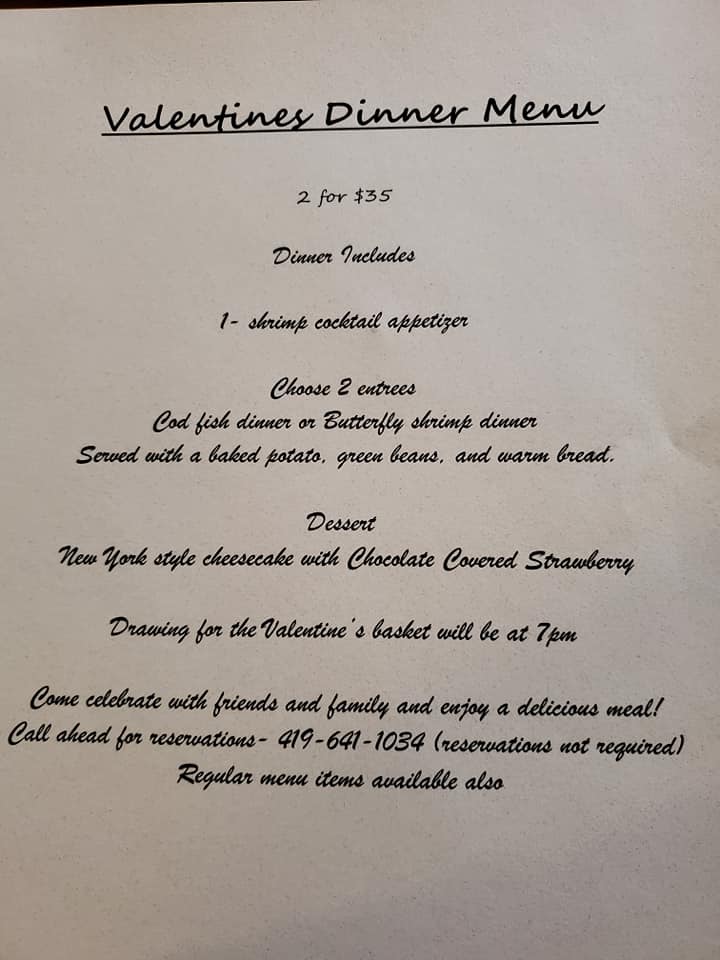 Valentines Dinner Menu
2 for $35
Dinner Includes
1- shrimp cocktail appetizer
Choose 2 entrees
Cod fish dinner or Butterfly shrimp dinner
Served with a baked potato, green beans, and warm bread.
Dessert
New York style cheesecake with Chocolate Covered Strawberry
Drawing for the Valentine's basket will be at 7pm
Come celebrate with friends and family and enjoy a delicious meal!
Call ahead for reservations- 419-641-1034 (reservations not required)
Regular menu items available also